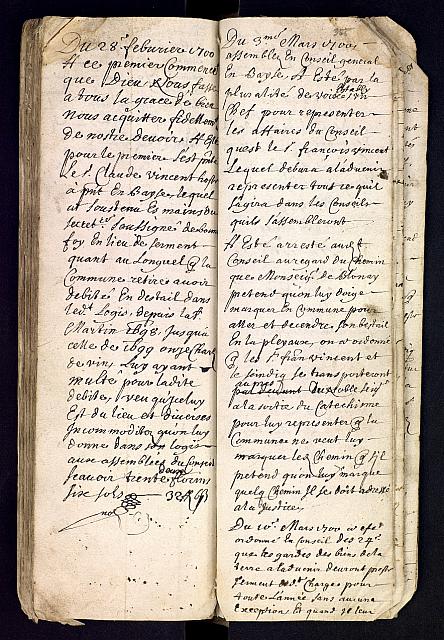 Du 28e. feburier 1700
A ce premier Commence
que Dieu Nous fasse
a tous la grace de bien
nous acquitter fidellement
de nostre devoir. A Esté
pour le premier
le Sr. Claude vincent hoste
a prit En Bayse, lequel
at soustenu Es mains du
secret.re soussigné de bonne
foy En lieu de serment
quant au Longuel q la
Commune retire avoir
debité En destail dans
led. Logis, depuis la St.
Martin 1698. Jusqu'a
celle de 1699 onze Char
de vins Luy ayant
multé pour ladite
debite, veu qu'iceluy
Est du lieu et diverses
Incommodites qu'on luy
donne dans son logis
aux assemblees du Conseil
scavoir trente florins
six sols
Du 3me Mars 1700.
assemblés En Conseil general
En Bayse, A Esté par la
pluralité de voix Estably
Chef pour representer
les affaires du Conseil
quest le Sr. françois vincent
Lequel debvra a l'advenir
representer tout ce quil
s'agira dans les Conseils
quils s'assembleront
A Esté arresté aud.t
Conseil au regard du Chemin
que Monseig.r de Blonay
pretend qu'on luy doige
marquer En Commune pour
aller et decendre son bestail
En la pleyaux, on a ordonné
q les Sr. fran vincent et
le sindiq se transporteront
aupres
a la sortie du Catechisme
pour luy representer q la
Commune ne veut luy
marquer les Chemin q s'il
pretend qu'on luy marque
quelq Chemin Il se doit adresser
a la Justice.
Du 10e. Mars 1700 a esté
ordonné En Conseil des 24e.
que les gardes des biens de la
terre a l'advenir devront
Charges pour
toute l'année sans aucune
Exception Et quand Il leur